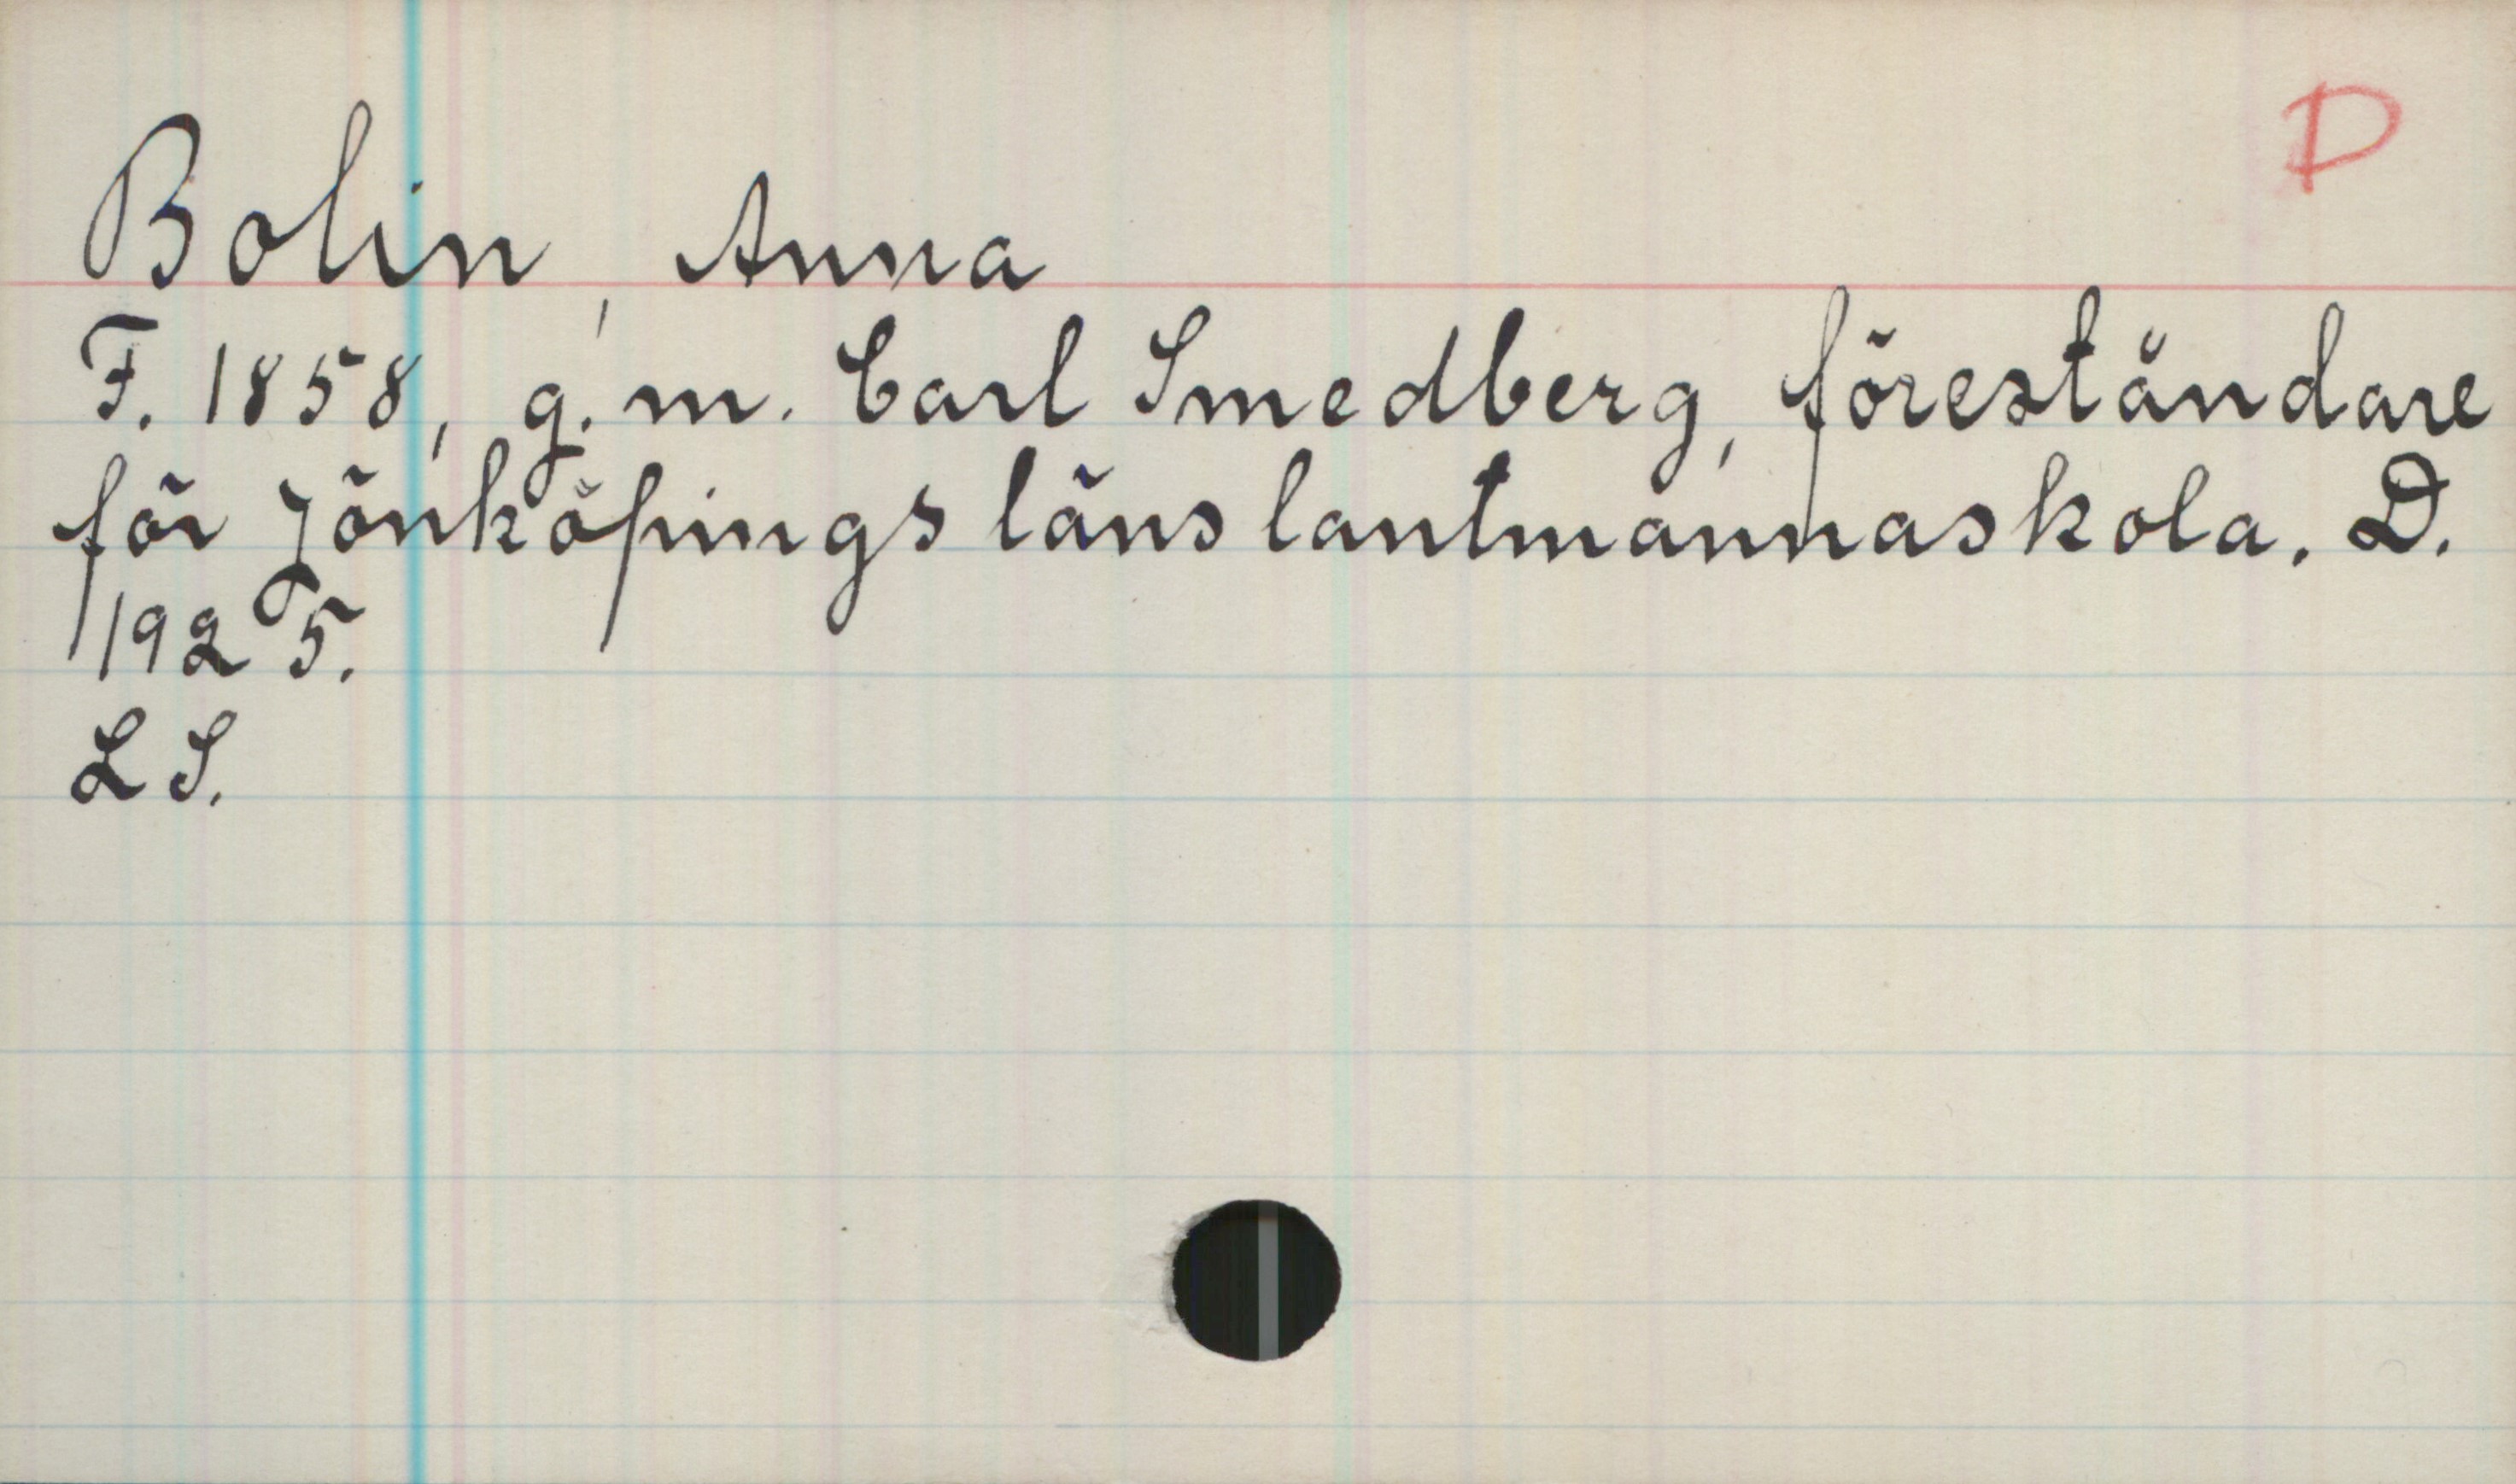 D
Bolin, Anna
F. 1858, g. m. Carl Smedberg, föreståndare
för Jönköpings läns lantmannaskola. D.
1925.
LS.